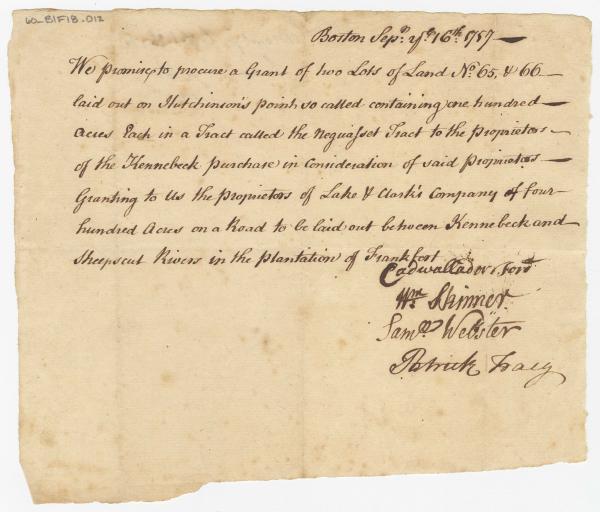 60_B1F18_012
Boston Sepr. ye. 16th. 1757
We promise to procure a Grant of two Lots of Land No. 65. & 66
laid out on Hutchinson's point so called containing one hundred
Acres Each in a Tract called the Neguasset Tract to the Proprietors
of the Kennebeck purchase in Consideration of said Proprietors
Granting to Us the Proprietors of Lake & Clark's Company of four
hundred Acres on a Road to be laid out between Kennebeck and
Sheepscut Rivers in the plantation of Frankfort
Cadwallader Ford
Wm. Skinner.
Saml. Webster
Patrick Tracy